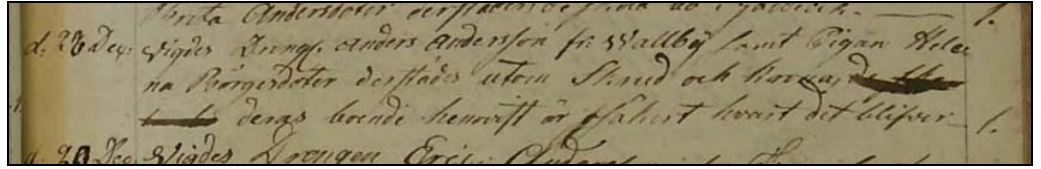 Brita Andersdoter derstädes
d. 26 Dec: Vigdes Drengs. Anders Andersson fr: Wallby samt Pigan Hele
na Börgesdoter derstädes utom Skrud och
deras boende hemvist är osäkert hvart det blifver 1.
d. 20 Dec Vigdes Drengen Eric